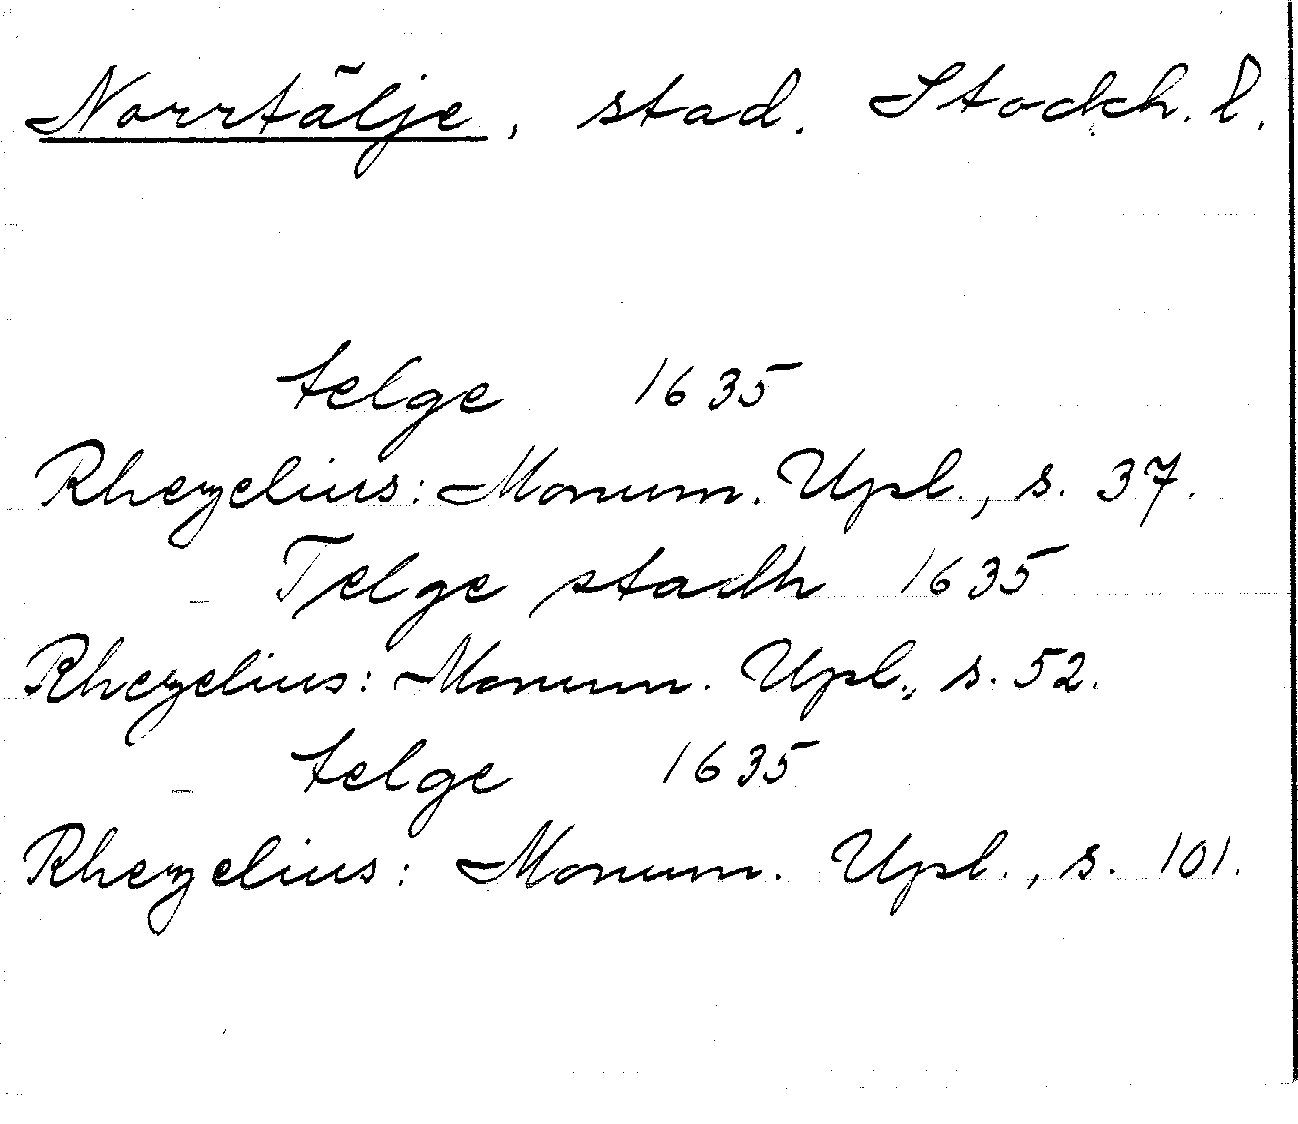 Norrtälje, stad. Stockh. l.
telge 1635
Rhezelius: Monum. Upl., s. 37.
Telge stadh 1635
Rhezelius: Monum. Upl., s. 52.
telge 1635
Rhezelius: Monum. Upl., s. 101.